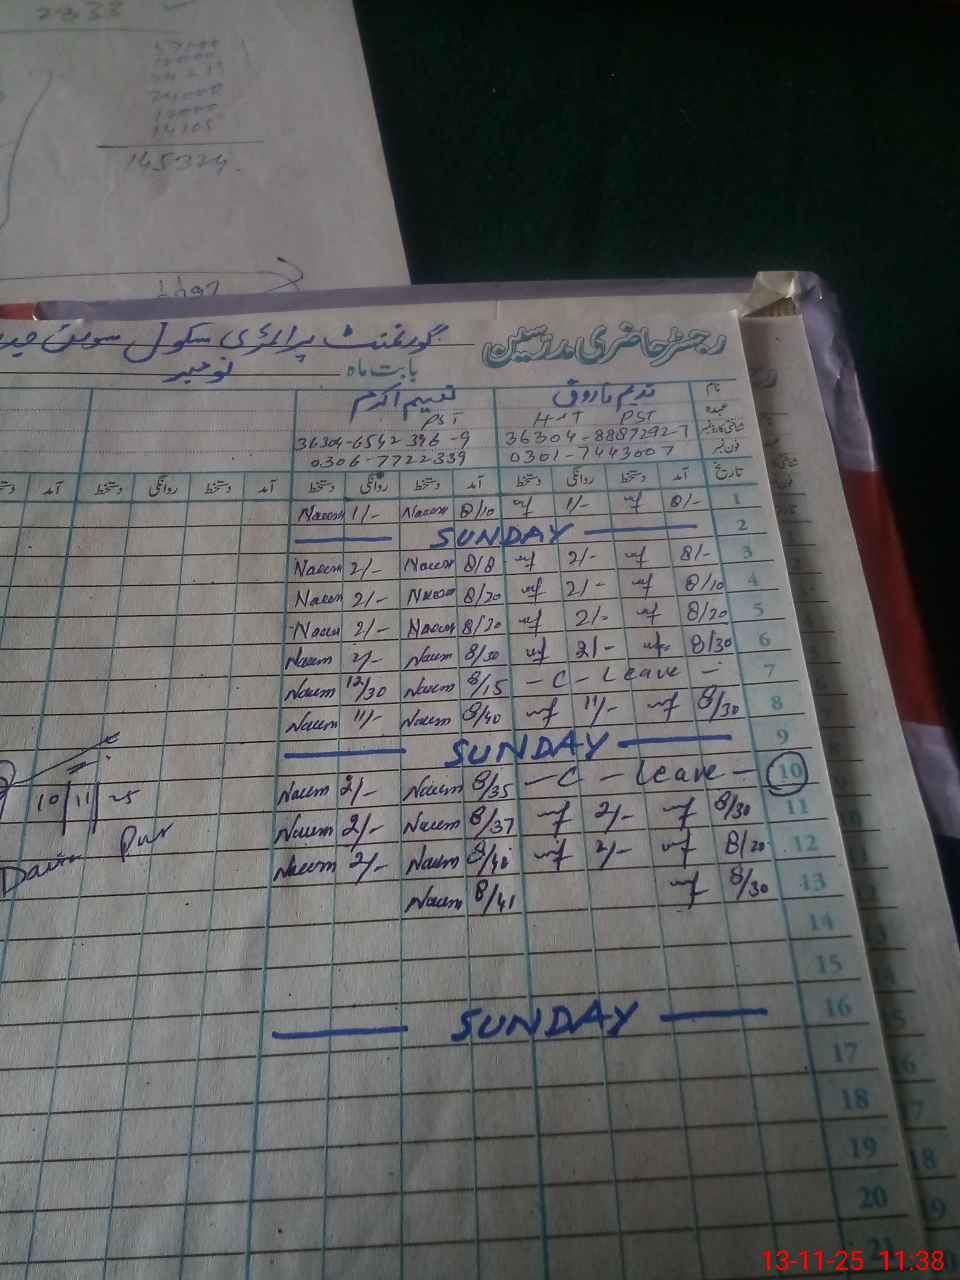 145324
رجسٹر حاضری مدرسین گورنمنٹ پرائمری سکول
بابت ماہ نومبر
نام ندیم فاروق نعیم اکرم
عہدہ PST PST
36304-8887292-7 36304-6542396-9
فون نمبر 0301-7443007 0306-7722339
تاریخ آمد دستخط روانگی دستخط آمد دستخط روانگی دستخط آمد دستخط روانگی دستخط آمد
1 8/- 1/- 8/10 Naeem 1/- Naeem
2 SUNDAY
3 8/- 2/- 8/8 Naeem 2/- Naeem
4 8/10 2/- 8/20 Naeem 2/- Naeem
5 8/20 2/- 8/20 Naeem 2/- Naeem
6 8/30 2/- 8/30 Naeem 2/- Naeem
7 - C - Leave - 8/15 Naeem 12/30 Naeem
8 8/30 11/- 8/40 Naeem 11/- Naeem
9 SUNDAY
10 - C - Leave - 8/35 Naeem 2/- Naeem
10/11/25
11 8/30 2/- 8/37 Naeem 2/- Naeem
12 8/20 2/- 8/40 Naeem 2/- Naeem
13 8/30 8/41 Naeem
14
15
16 SUNDAY
17
18
19
20
21
13-11-25 11:38